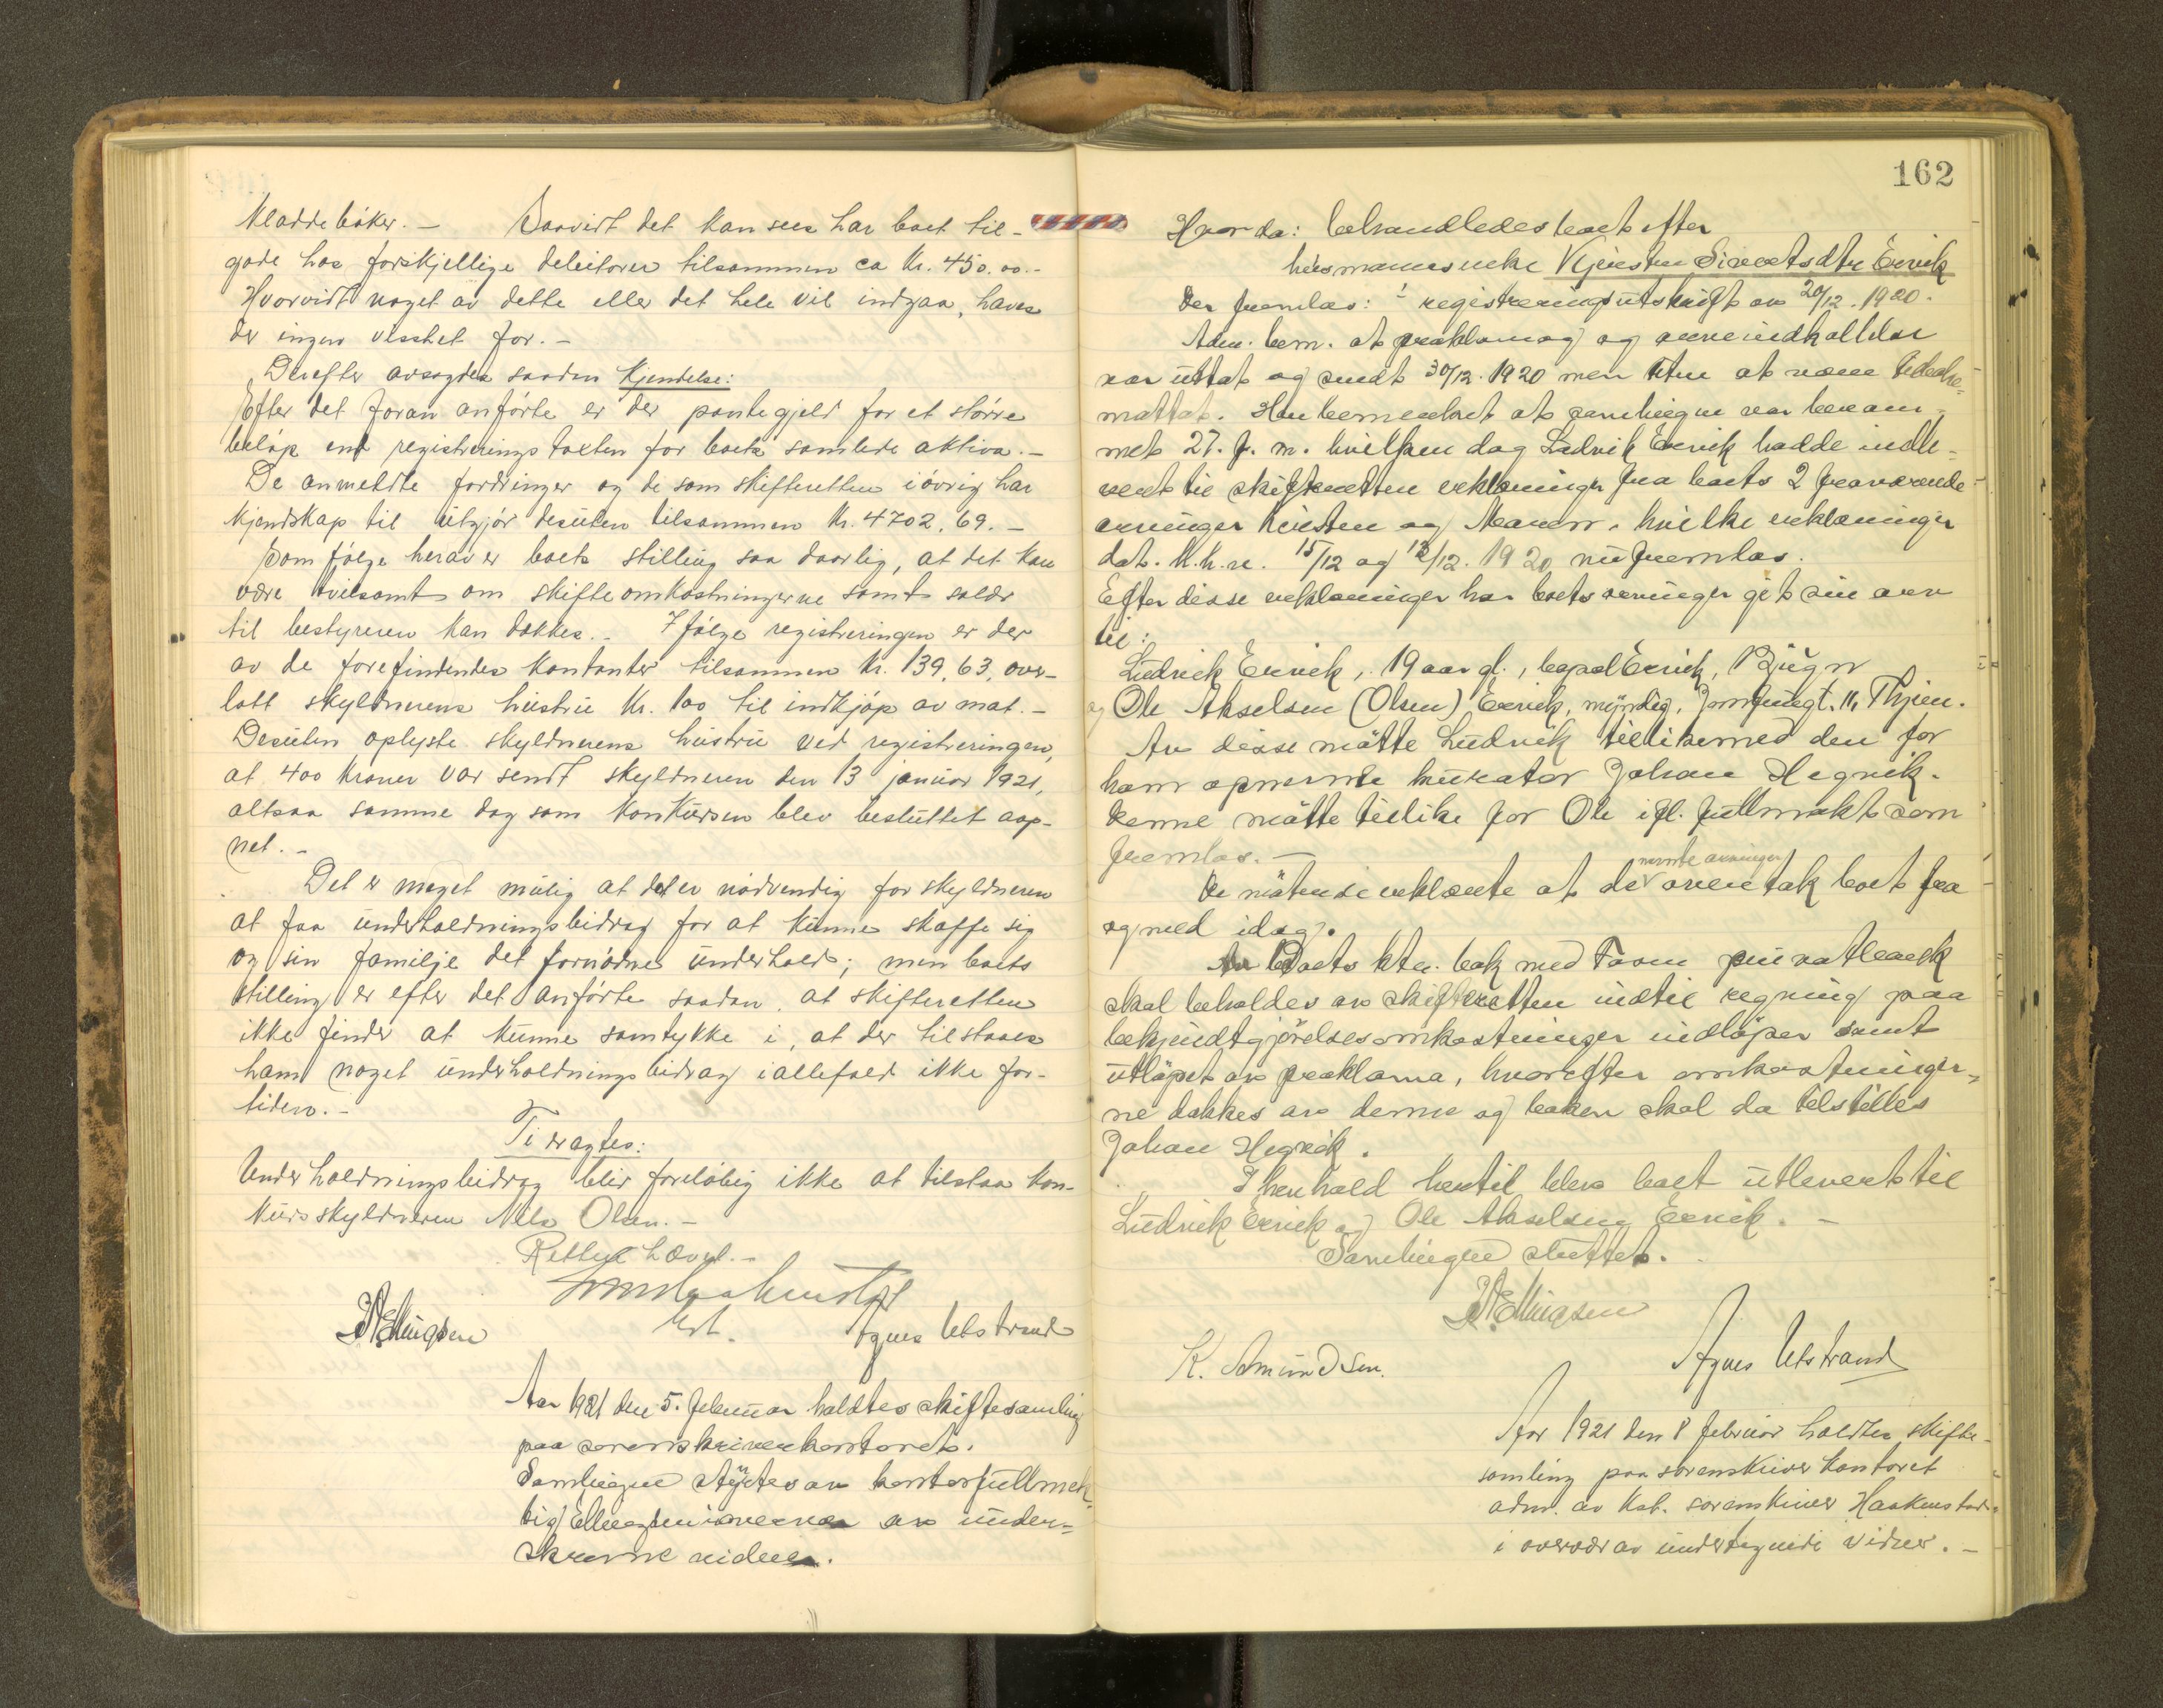 Kladdebøker. — Saavidt det kan sees har boet til-
gode hos forskjellige debitorer tilsammen ca kr. 450.00. -
Hvorvidt noget av dette eller det hele vil indgaa, haves
der ingen visshet for. —
Derefter avsagdes saadan Kjendelse:
Efter det foran anførte er der pantegjeld for et større
beløp end registreringstaksten for boets samlede aktiva. —
De anmeldte fordringer og de som skifteretten iøvrig har
kjendskap til utgjør desuten tilsammen kr. 4702.69. —
Som følge herav er boets stilling saa daarlig, at det kan
være tvilsomt om skifteomkostningerne samt salær
til bestyreren kan dækkes. - Ifølge registreringen er der
av de forefindendes kontanter tilsammen kr. 139,63, over-
latt skyldnerens hustru kr. 100 til indkjøp av mat. —
Desuten oplyste skyldnerens hustru ved registreringen,
at 400 kroner var sendt skyldneren den 13 januar 1921,
altsaa samme dag som konkursen blev besluttet aap-
net. —
Det er meget mulig at det er nødvendig for skyldneren
at faa underholdningsbidrag for at kunne skaffe sig
og sin familje det fornødne underhold; men boets
stilling er efter det anførte saadan at skifteretten
ikke finder at kunne samtykke i, at der tilstaaes
ham noget underholdningsbidrag iallefald ikke for-
tiden. —
Ti vragtes:
Underholdningsbidrag blir foreløbig ikke at tilstaa kon-
kursskyldneren Nils Olsen. —
Retten hævet. —
Kst.
Ellingsen Agnes Ulstrand
Aar 1921 den 5. februar holdtes skiftesamling
paa sorenskriverkontoret.
Samlingen styrtes av kontorfullmek-
tig Ellingsen i nærvær av under-
skrevne vidner.
162
Hvorda: behandledes boet efter
husmannsenke Kjersten Sivertsdtr Ervik
Der fremlas: 1 registreringsutskrift av 20/12. 1920.
Adm. bem. at proklamag og arveindkallelse
var uttat og sendt 30/12. 1920 men uten at være tilbake-
mottat. Han bemerket at samlingen var beram-
met 27. f. m. hvilken dag Ludvik Ervik hadde indle-
vert til skifteretten erklæringer fra boets 2 fraværende
arvinger Kirsten og , hvilke erklæringer
dat. h.h.v. 15/12 og 12/12. 1920 nu fremlas.
Efter disse erklæringer har boets arvinger git sin arv
til:
Ludvick Ervick, 19 aar gl., bopæl Ervick, Bjugn
og Ole Akselsen (Olsen) Ervick, myndig, Thjem.
Av disse møtte Ludvik tillikemed den for
ham opnevnte kurator Johan Hegvik.
Denne møtte tillike for Ole ifl. fullmakt som
fremlas. —
De møtende erklærte at de nevnte arvinger overtok boet fra
og med idag.
Boets ktr. bok med Fosen privatbank
skal beholdes av skifteretten indtil regning paa
bekjendtgjørelsesomkostninger indløper samt
utløpet av proklama, hvorefter omkostninger-
ne dækkes av denne og boken skal da tilstilles
Johan Hegvik.
I henhold hertil blev boet utlevert til
Ludvick Ervick og Ole Akselsen Ervick. —
Samlingen sluttet.
Ellingsen
K. Amundsen. Agnes Ulstrand
Aar 1921 den 8 februar holdtes skifte-
samling paa sorenskriverkontoret
adm. av kst. sorenskriver Haakenstad
i overvær av undertegnede vidner. —